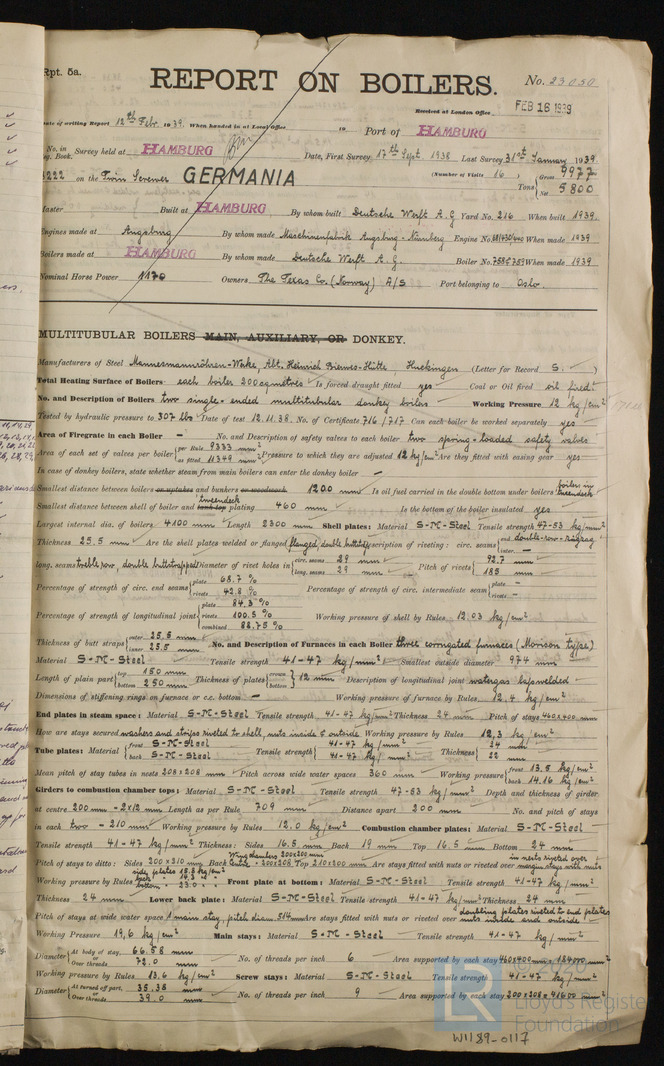 Rpt. 5a.
REPORT ON BOILERS.
No. 23050
Received at London Office FEB 16 1939
Date of writing Report 12th Febr. 1939. When handed in at Local Office 19 Port of HAMBURG
No. in Reg. Book. Survey held at HAMBURG Date, First Survey 17th Sept. 1938 Last Survey 31st January 1939
on the Twin Screwer GERMANIA (Number of Visits 16) Tons Gross 9977 Net 5800
Master Built at HAMBURG By whom built Deutsche Werft A.G Yard No. 216 When built 1939
Engines made at Augsburg By whom made Maschinenfabrik Augsburg-Nürnberg Engine No. When made 1939
Boilers made at HAMBURG By whom made Deutsche Werft A.G Boiler No. 758 & 759 When made 1939
Nominal Horse Power 1170 Owners The Texas Co. (Norway) A/S Port belonging to Oslo.
MULTITUBULAR BOILERS MAIN, AUXILIARY, OR DONKEY.
Manufacturers of Steel Mannesmannröhren-Werke, Abt. Heinrich Bierwes-Hütte, Huckingen (Letter for Record S.)
Total Heating Surface of Boilers each boiler 200 sq metres Is forced draught fitted yes Coal or Oil fired oil fired
No. and Description of Boilers two single-ended multitubular donkey boilers Working Pressure 12 kg/cm²
Tested by hydraulic pressure to 307 lbs Date of test 12.11.38. No. of Certificate 716/717 Can each boiler be worked separately yes
Area of Firegrate in each Boiler — No. and Description of safety valves to each boiler two spring-loaded safety valves
Area of each set of valves per boiler per Rule 9333 mm² as fitted 11349 mm² Pressure to which they are adjusted 12 kg/cm² Are they fitted with easing gear yes
In case of donkey boilers, state whether steam from main boilers can enter the donkey boiler —
Smallest distance between boilers or uptakes and bunkers or woodwork 1200 mm Is oil fuel carried in the double bottom under boilers boilers in tweendeck
Smallest distance between shell of boiler and tank top tweendeck plating 460 mm Is the bottom of the boiler insulated yes
Largest internal dia. of boilers 4100 mm Length 2300 mm Shell plates: Material S-M-Steel Tensile strength 47-53 kg/mm²
Thickness 25.5 mm Are the shell plates welded or flanged flanged, double buttstrap Description of riveting: circ. seams end double-row-zigzag inter. —
long. seams treble row, double buttstrapped Diameter of rivet holes in circ. seams 29 mm long. seams 29 mm Pitch of rivets 92.7 mm 185 mm
Percentage of strength of circ. end seams plate 68.7 % rivets 42.8 % Percentage of strength of circ. intermediate seam plate — rivets —
Percentage of strength of longitudinal joint plate 84.3 % rivets 100.5 % combined 88.75 % Working pressure of shell by Rules 12.03 kg/cm²
Thickness of butt straps outer 25.5 mm inner 25.5 mm No. and Description of Furnaces in each Boiler three corrugated furnaces (Morison type)
Material S-M-Steel Tensile strength 41-47 kg/mm² Smallest outside diameter 974 mm
Length of plain part top 150 mm bottom 250 mm Thickness of plates crown bottom 12 mm Description of longitudinal joint watergas lapwelded
Dimensions of stiffening rings on furnace or c.c. bottom — Working pressure of furnace by Rules 12.4 kg/cm²
End plates in steam space: Material S-M-Steel Tensile strength 41-47 kg/mm² Thickness 24 mm Pitch of stays 460x400 mm
How are stays secured washers and strips riveted to shell, nuts inside & outside Working pressure by Rules 12,3 kg/cm²
Tube plates: Material front S-M-Steel back S-M-Steel Tensile strength 41-47 kg/mm² 41-47 kg/mm² Thickness 24 mm 22 mm
Mean pitch of stay tubes in nests 208 x 208 mm Pitch across wide water spaces 360 mm Working pressure front 13.5 kg/cm² back 14.16 kg/cm²
Girders to combustion chamber tops: Material S-M-Steel Tensile strength 47-53 kg/mm² Depth and thickness of girder
at centre 200 mm - 2x12 mm Length as per Rule 709 mm Distance apart 200 mm No. and pitch of stays
in each two - 210 mm Working pressure by Rules 12.0 kg/cm² Combustion chamber plates: Material S-M-Steel
Tensile strength 41-47 kg/mm² Thickness: Sides 16.5 mm Back 19 mm Top 16.5 mm Bottom 24 mm
Pitch of stays to ditto: Sides 200 x 210 mm Back Wing chambers 200x200 mm Centre 200x208 Top 210x200 mm Are stays fitted with nuts or riveted over in nests riveted over margin stays with nuts
Working pressure by Rules side plates back bottom 23.0 Front plate at bottom: Material S-M-Steel Tensile strength 41-47 kg/mm²
Thickness 24 mm Lower back plate: Material S-M-Steel Tensile strength 41-47 kg/mm² Thickness 24 mm
Pitch of stays at wide water space 1 main stay, pitch diam. 514 mm Are stays fitted with nuts or riveted over doubling plates riveted to end plates nuts inside and outside
Working Pressure 19,6 kg/cm² Main stays: Material S-M-Steel Tensile strength 41-47 kg/mm²
Diameter At body of stay, 66.58 mm Over threads 72.0 mm No. of threads per inch 6 Area supported by each stay 460x400 mm = 184000 mm²
Working pressure by Rules 13.6 kg/cm² Screw stays: Material S-M-Steel Tensile strength 41-47 kg/mm²
Diameter At turned off part, 35.38 mm or Over threads 39.0 mm No. of threads per inch 9 Area supported by each stay 200x208 = 41600 mm²
© 2020
LR
Lloyd's Register
Foundation
W1189-0117